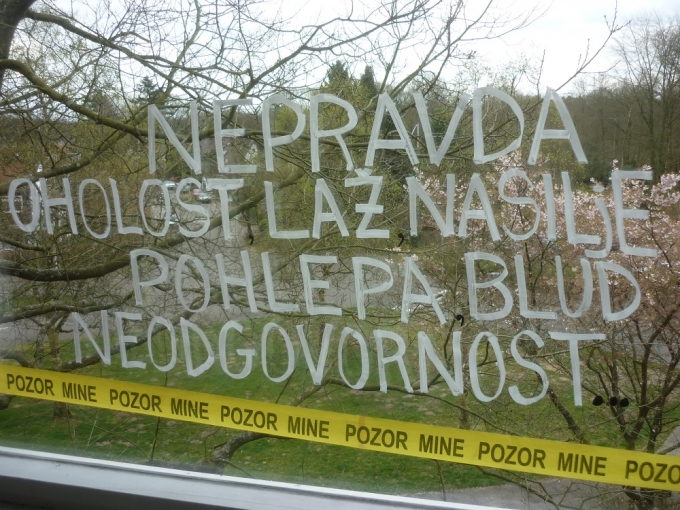 NEPRAVDA
OHOLOST LAŽ, NASILjE
POHLEPA BLUD,
NEODGOVORNOST...
POZOR MINE POZOR MINE POZOR MINE POZOR MINE POZOR MINE POZO